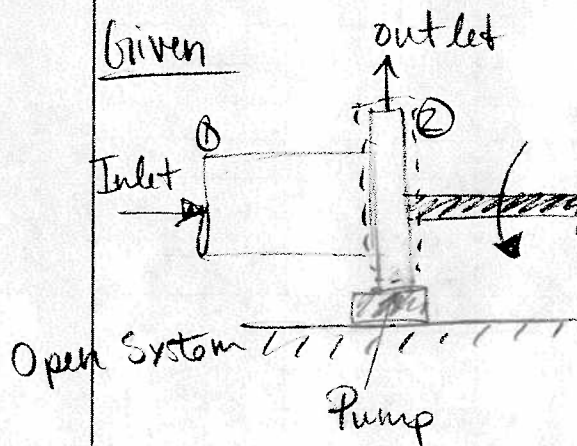 Given
outlet
①
②
Inlet
Open System
Pump